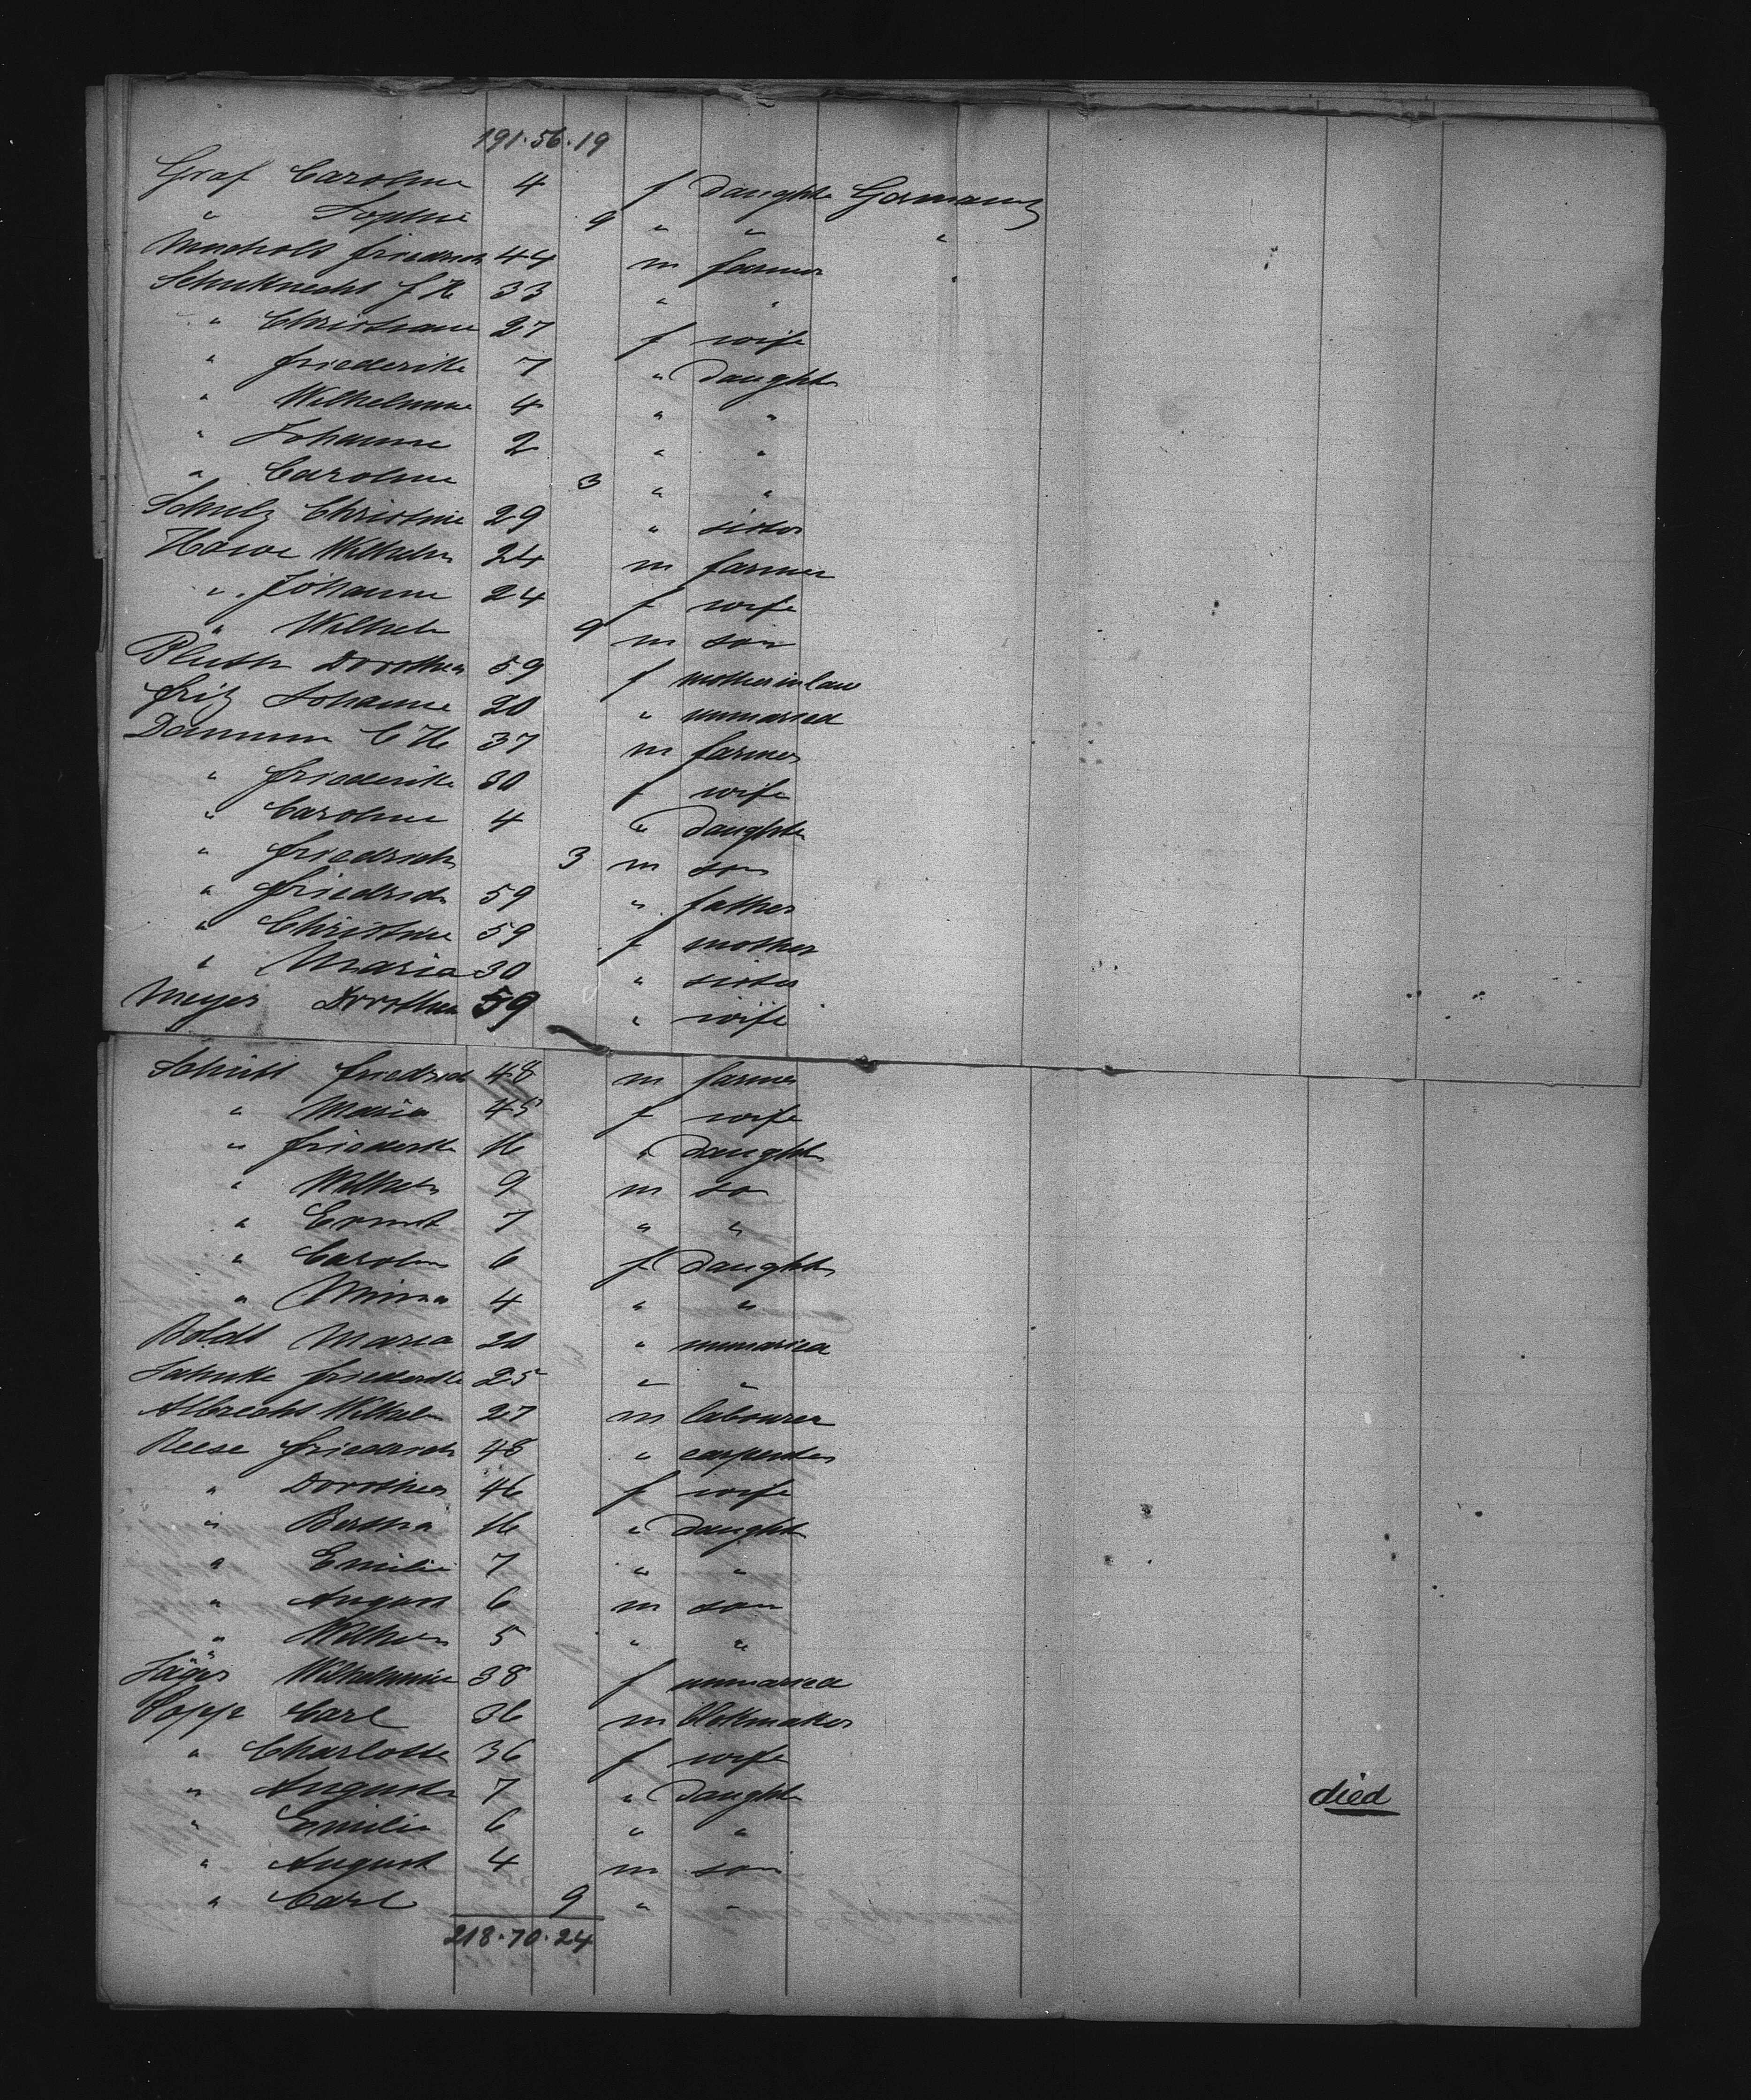 191 . 56 . 19
Graf Caroline 4 f daughte Germany
" Sophie 9 " " "
Friedrich 44 m farmer "
Schuknecht f H 33 " "
" Christiane 27 f wife
" friederike 7 " daught
" Wilhelmine 4 " "
" Johanne 2 " "
" Caroline 3 " "
Schulz Christine 29 " sister
Hawe Wilhelm 24 m farmer
" Johanne 24 f wife
" Wilhelm 9 m son
Bluth Dorothea 59 f mother in law
Fritz Johanne 20 " unmaried
Dammm C H 37 m farmer
" friederike 30 f wife
" Caroline 4 " daughte
" friedrich 3 m son
" friedrich 59 " father
" Christine 59 f mother
" Maria 30 " sister
Meyer Dorothea 59 " wife
Schütt friedrich 48 m farmer
" Maria 45 f wife
" friederike 16 " daught
" Wilhelm 9 m so
" Ernst 7 " "
" Carolin 6 f daught
" Minna 4 " "
Boldt Maria 20 " unmaried
Jahnke friederike 25 " "
Albrecht Wilhelm 27 m labourer
Reese friedrich 48 " carpenter
" Dorothea 46 f wife
" Bertha 16 " daught
" Emilie 7 " "
" August 6 m son
" Wilhelm 5 " "
Jäger Wilhelmine 38 f unmaried
Copp Carl 36 m blokmaker
" Charlotte 36 f wife
" Auguste 7 " daught died
" Emilie 6 " "
" August 4 m son
" Carl 9 " "
218 . 70 . 24